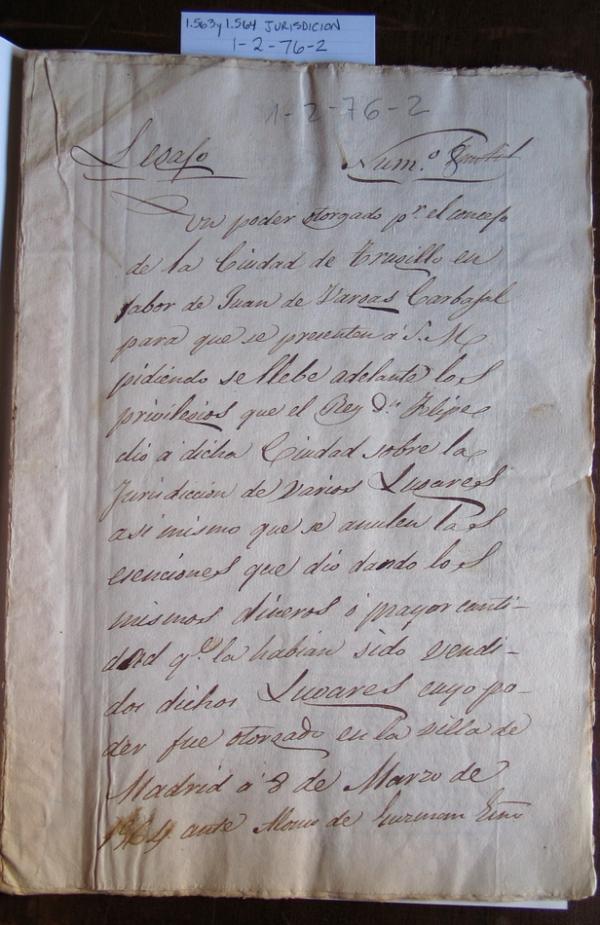 1.563 y 1.564 JURISDICION
1-2-76-2
1-2-76-2
Legajo Num.º 8
Un poder otorgado pr. el concejo
de la Ciudad de Trugillo en
fabor de Juan de Vargas Carbajal
para que se presenten a S. M.
pidiendo se llebe adelante los
privilegios que el Rey Dn. Felipe
dio a dicha Ciudad sobre la
Jurisdiccion de varios Lugares
asi mismo que se anulen las
esenciones que dio dando los
mismos dineros o mayor canti-
dad qe. la habian sido vendi-
dos dichos Lugares cuyo po-
der fue otorgado en la villa de
Madrid a 8 de Marzo de
1564 ante Alonso de Guzman Esno